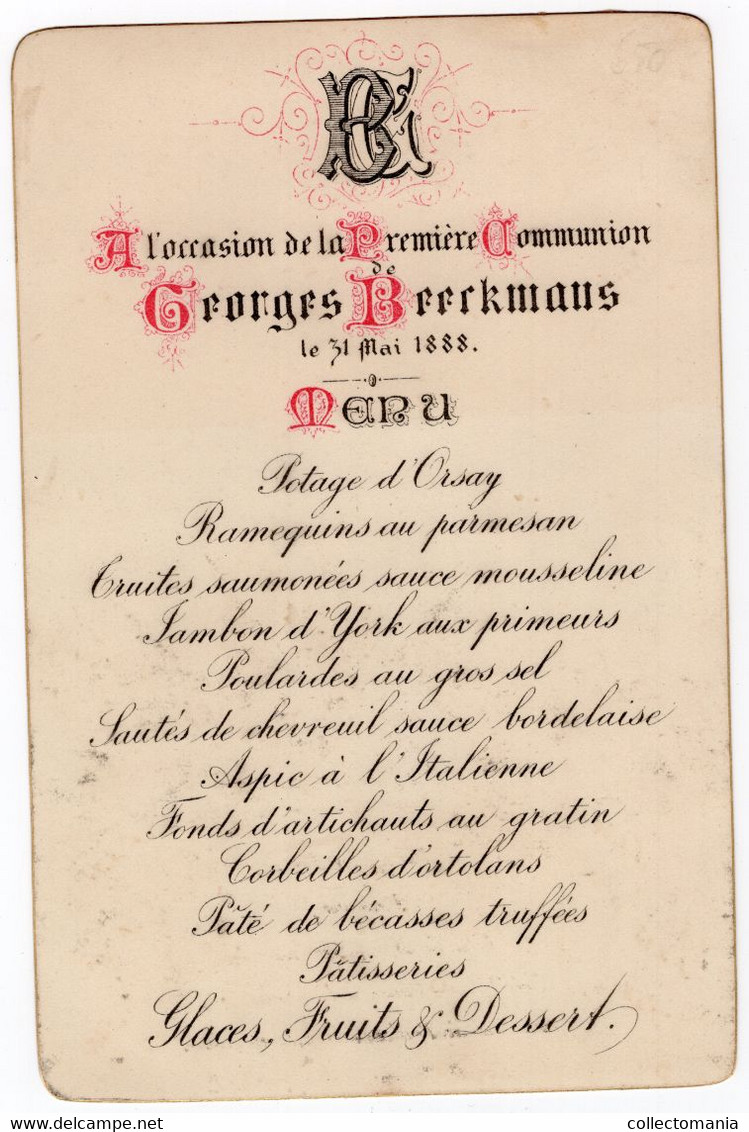 GB
A l'occasion de la Première Communion
de
Georges Beeckmans
le 31 Mai 1888.
Menu
Potage d'Orsay
Ramequins au parmesan
Truites saumonées sauce mousseline
Jambon d'York aux primeurs
Poulardes au gros sel
Sautés de chevreuil sauce bordelaise
Aspic à l'Italienne
Fonds d'artichauts au gratin
Corbeilles d'ortolans
Pâté de bécasses truffées
Pâtisseries
Glaces, Fruits & Dessert.
delcampe.net
collectomania